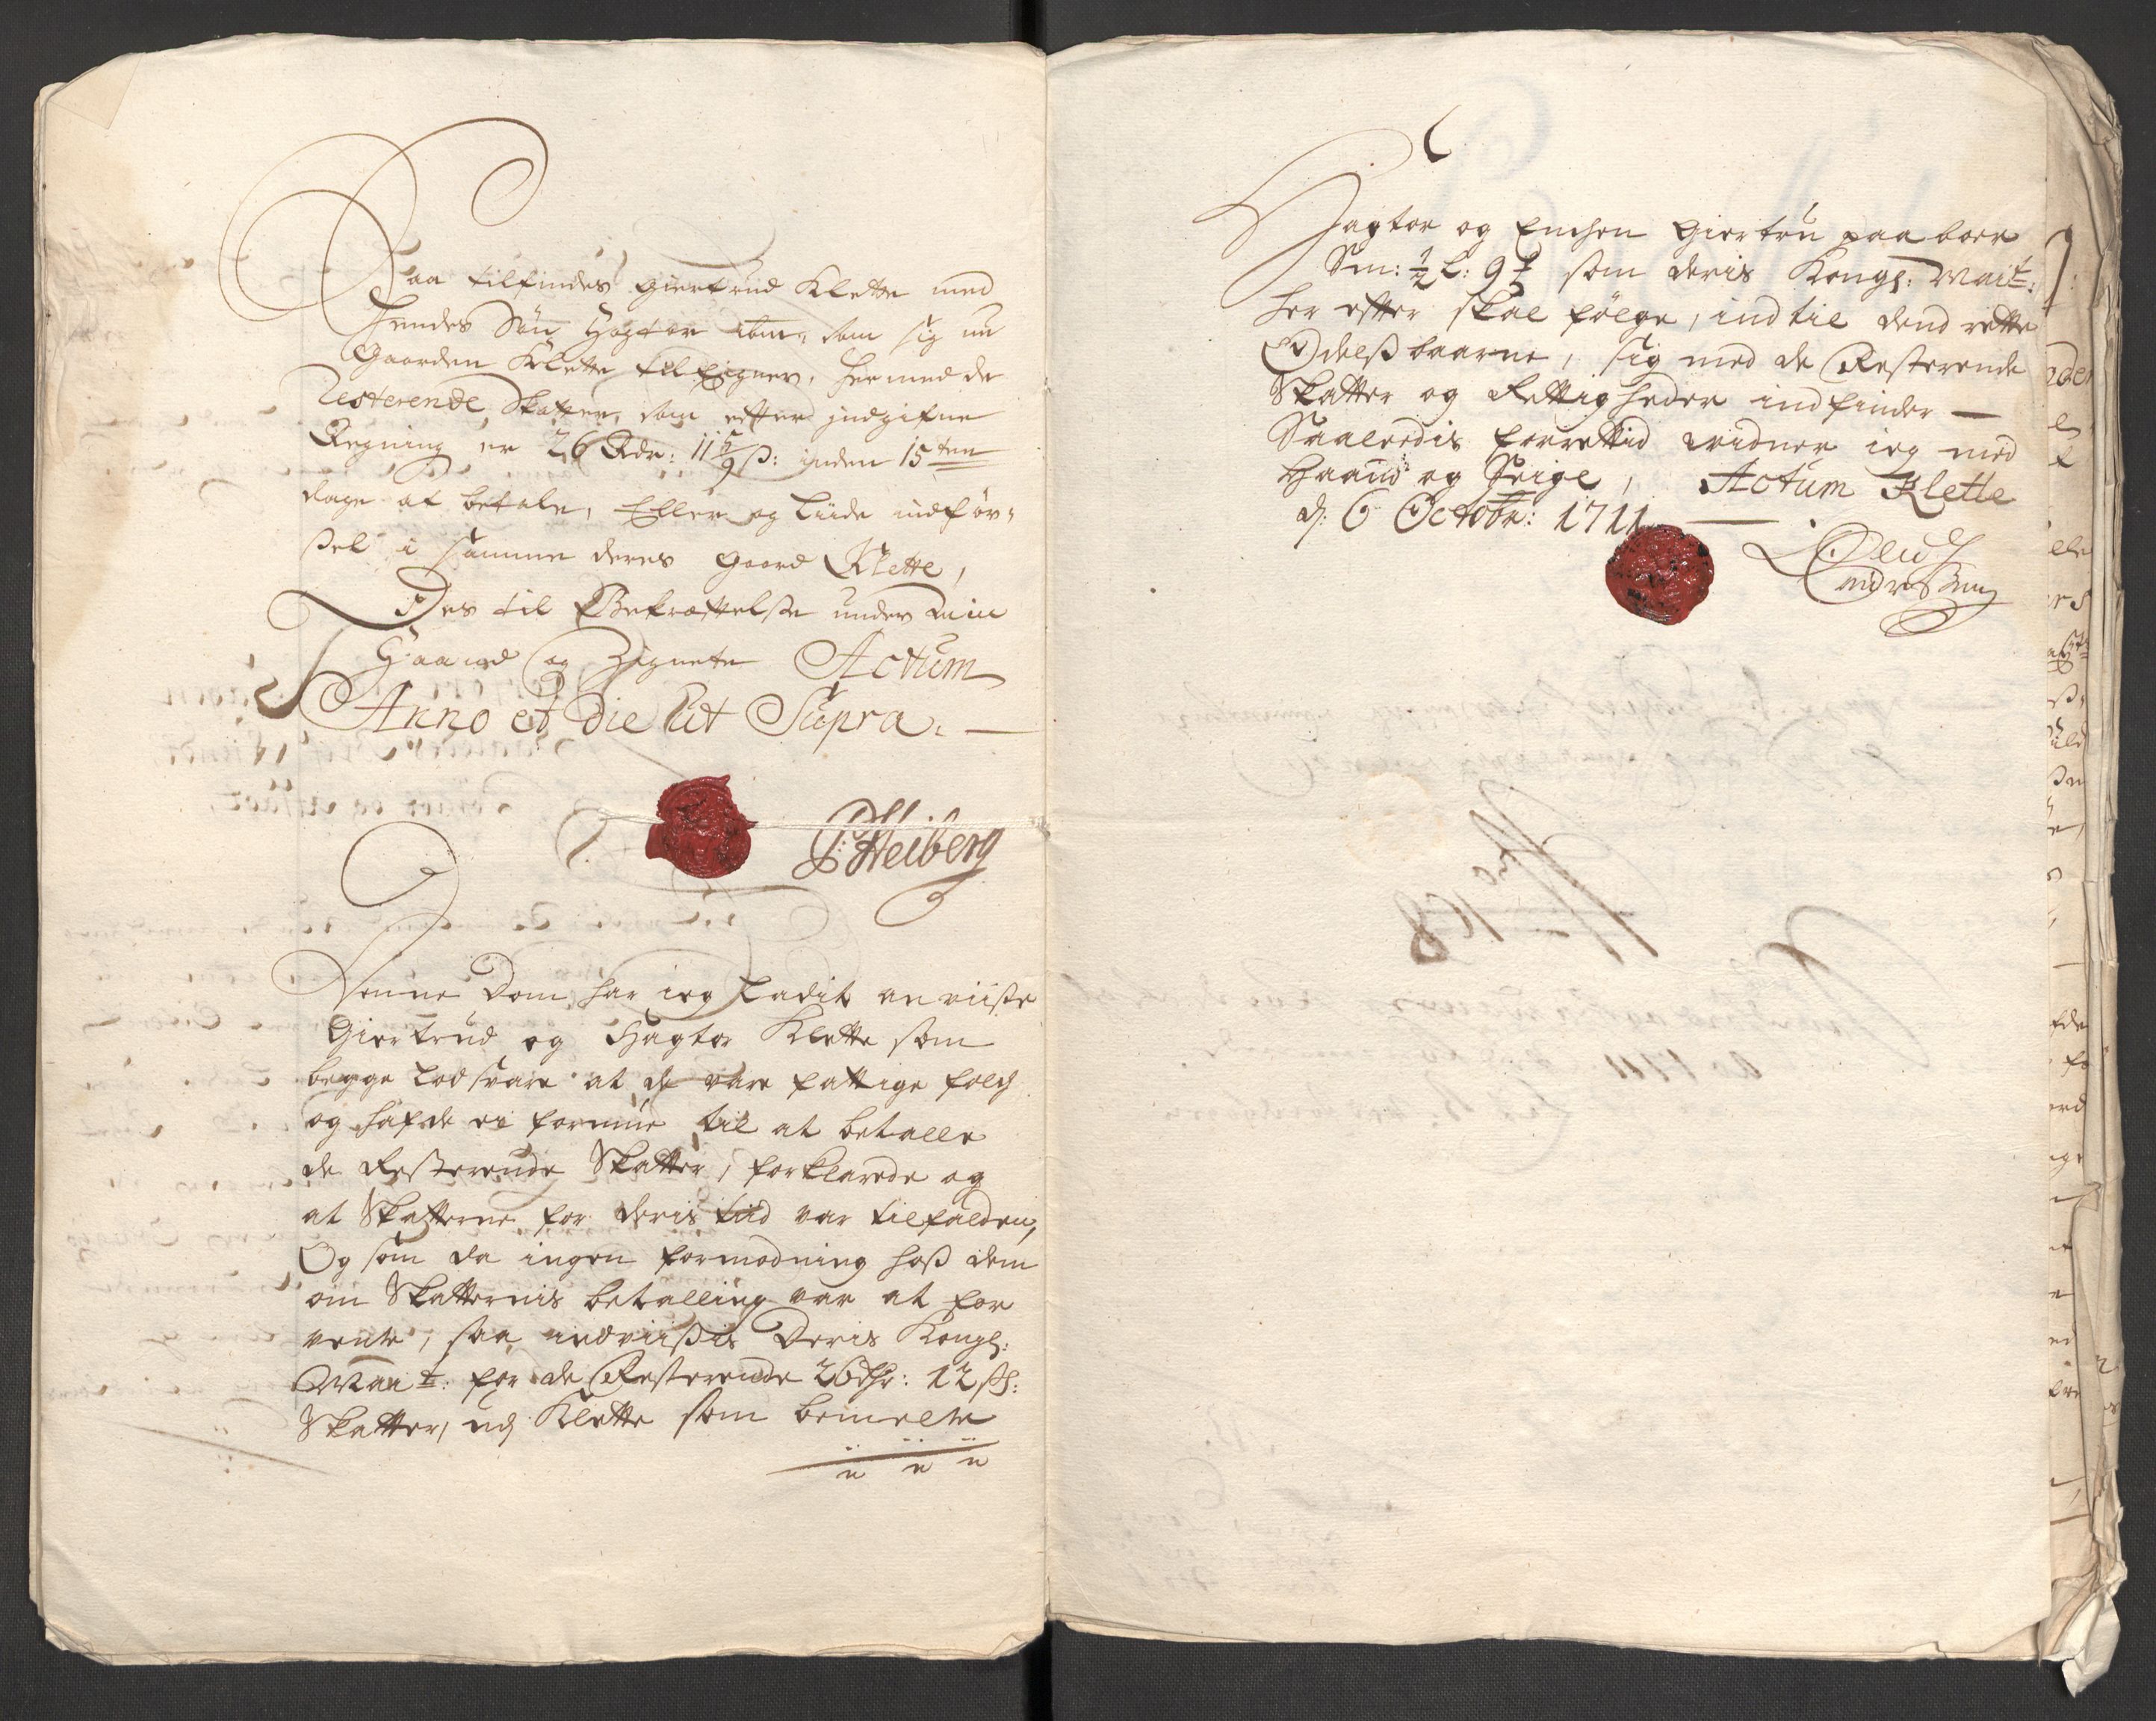 Saa tilfindes Giertrud Klette med
hendes Søn Hagtor som sig nu
Gaarden Klette tilEigner, hermed de
Resterende Skatter, som efter indgifne
Regning er 26 Rdr: 11 5/9 ß: inden 15ten
dage at betale, Eller og Liide indför-
ßel i samme deres gaard Klette,
Des til Bekræftelse under Min
Haand og Zignete Actum
Anno et Die Ut Supra.
P: Heiberg
Denne Dom har ieg Ladit anviiße
Giertrud og Hagtor Klette som
begge Lod svare at de vare fattige folch
og hafde ei formue til at betalle
de Resterende Skatter, forklarede og
at Skatterne for deris tiid var tilfalden,
Og som da ingen formodning hoß dem
om Skatternis betalling var at for
vente, saa indviißis Deris Kongl:
Mait: for de Resterende 26 dhr: 12 ßh:
Skatter, udj Klette som bemelte
Hagtor og Enchen Giertru paaboer
Sm: 1/2 L: 9 som deris Kongl: Mait:
her efter skal følge, indtil dend rette
Odelßbaarne, sig med de Resterende
Skatter og Rettigheder indfinder —
Saaledis forrettid vidner ieg med
Haand og Seigl, Actum Klette
d: 6 Octobr: 1711
Oluf
Andersen